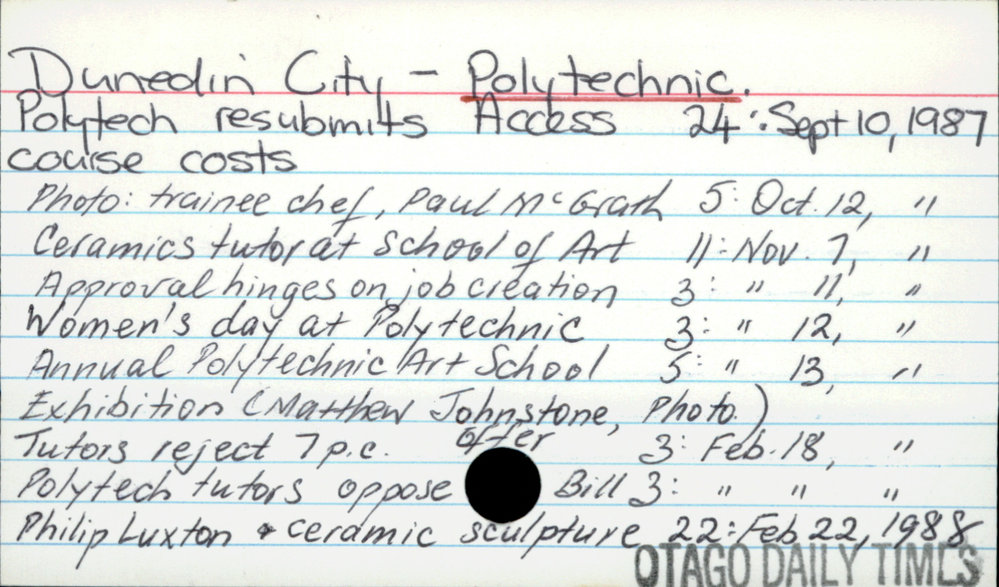 Dunedin City - Polytechnic.
Polytech resubmits Access 24: Sept 10, 1987
course costs
Photo: trainee chef, Paul McGrath 5: Oct. 12, "
Ceramics tutor at School of Art 11: Nov. 7, "
Approval hinges on job creation 3: " 11, "
Women's day at Polytechnic 3: " 12, "
Annual Polytechnic Art School 5: " 13, "
Exhibition (Matthew Johnstone, Photo.)
Tutors reject 7 p.c. offer 3: Feb. 18, "
Polytech tutors oppose Bill 3: " " "
Philip Luxton & ceramic sculpture 22: Feb 22, 1988
OTAGO DAILY TIMES